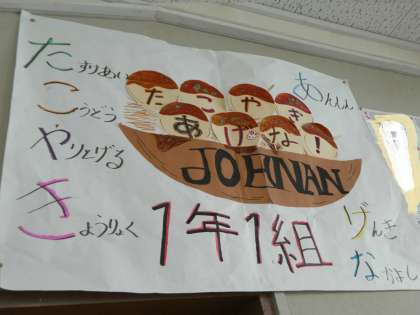 たすけあい
こうどう
やりとげる
きょうりょく
たこやき
あげな!
JOHNAN
1年1組
あんしん
げんき
なかよし